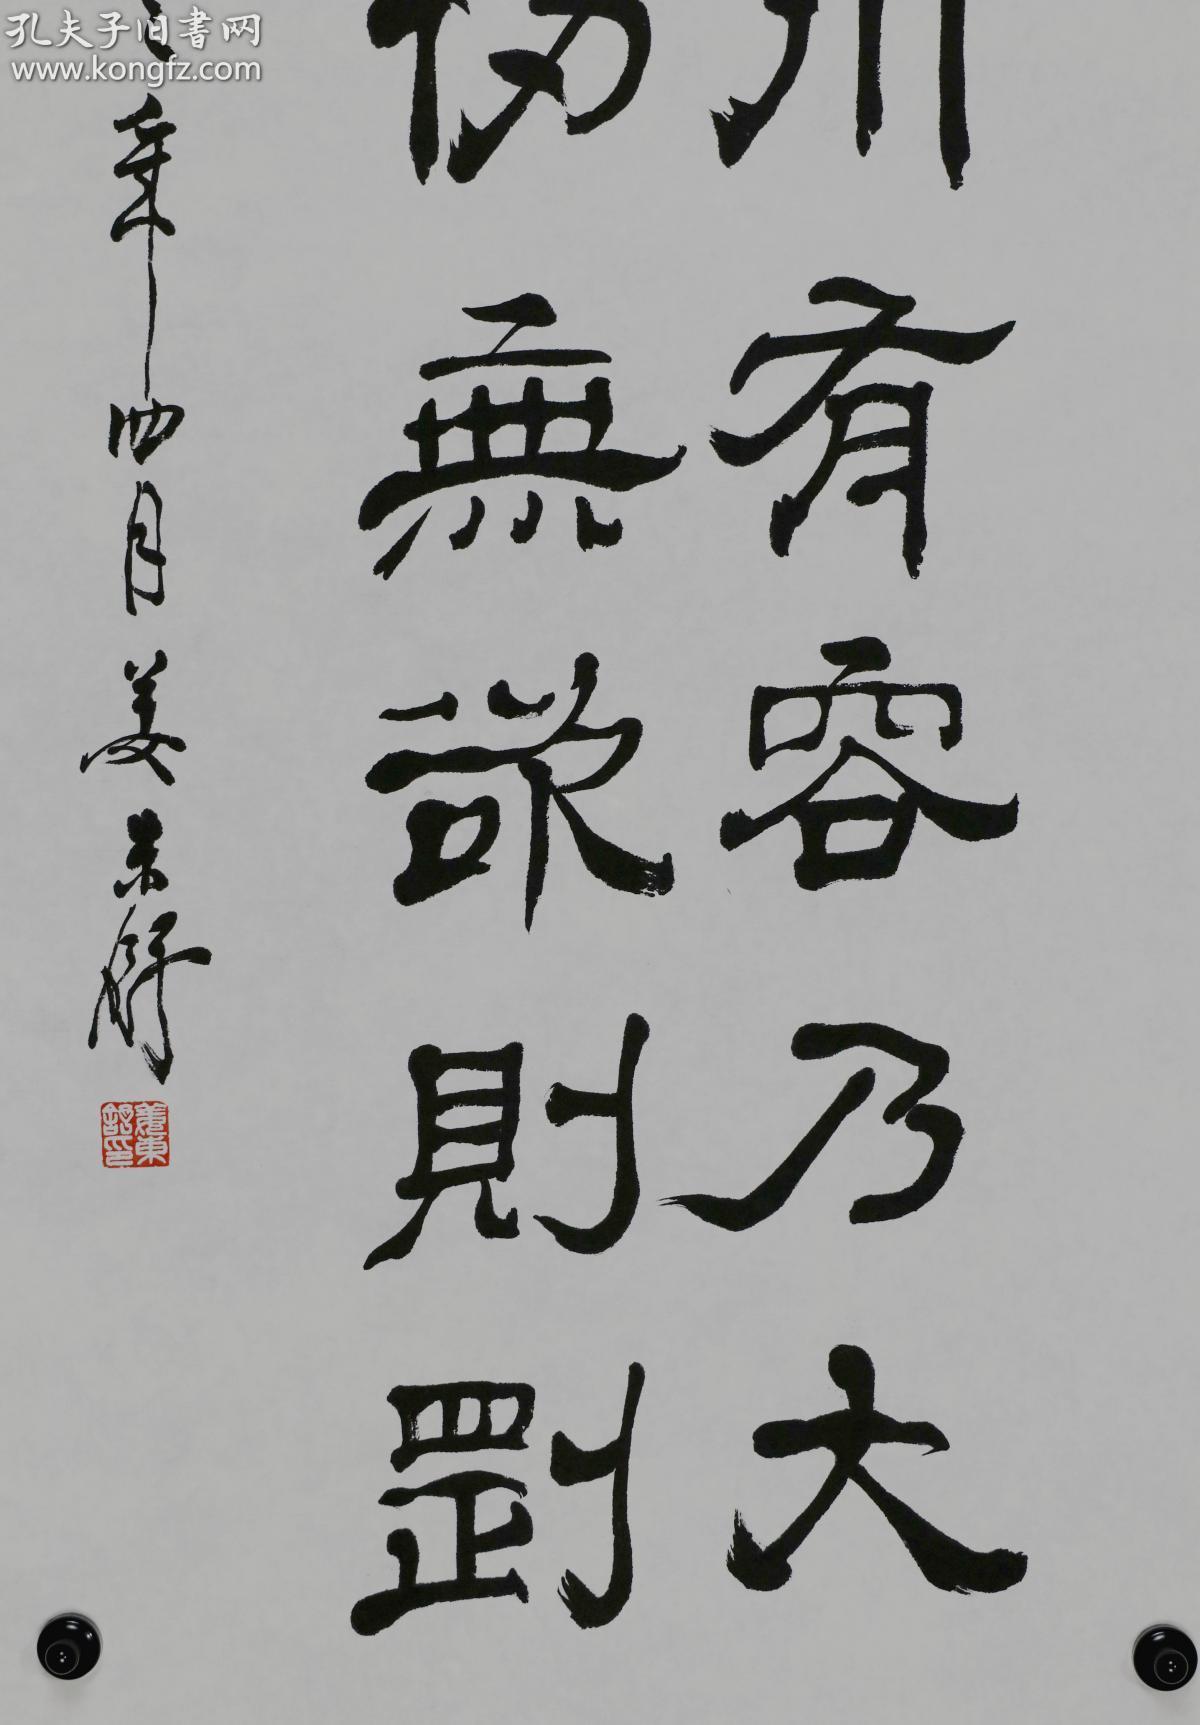 孔夫子旧書网
www.kongfz.com
川有容乃大
仞無欲則剛
年四月姜东舒
姜東舒印